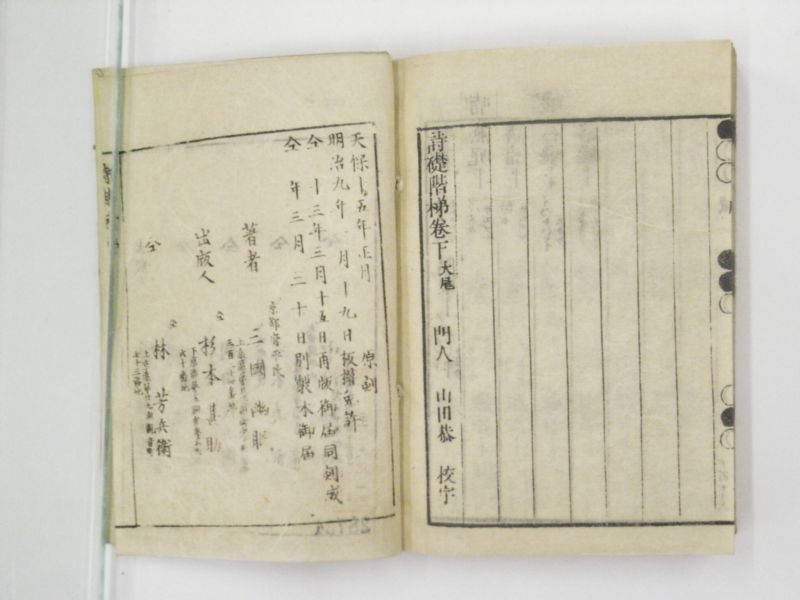 詩礎階梯卷下大尾 門人 山田恭 校字
天保十五年正月 原刻
明治九年 月十九日板権免許
仝 十三年三月十五日再版御届同刻成
仝 年三月三十日別製本御届
京都府平民
著者 三國幽眠
出版人 仝 杉本甚助
仝 仝 林芳兵衛